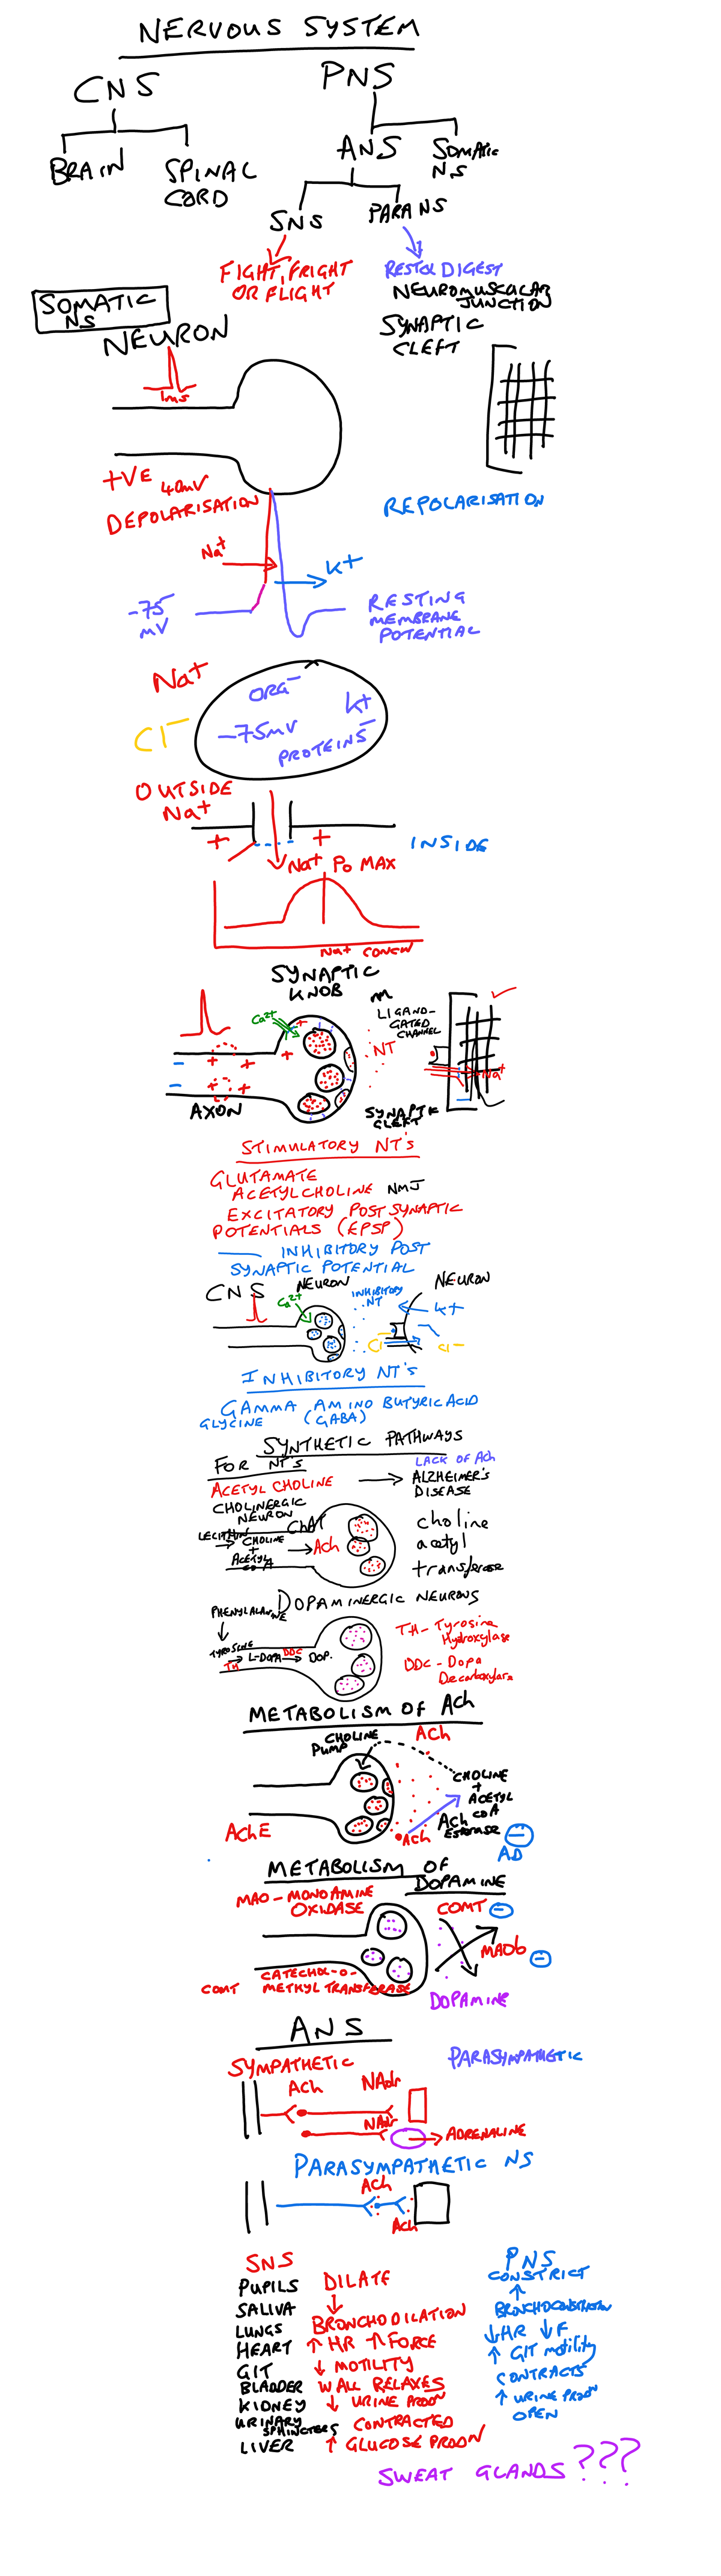 NERVOUS SYSTEM
CNS
PNS
BRAIN
SPINAL
CORD
ANS
SOMATIC
NS
SNS
PARA NS
FIGHT, FRIGHT
OR FLIGHT
REST & DIGEST
NEUROMUSCULAR
JUNCTION
SOMATIC
NS
NEURON
SYNAPTIC
CLEFT
1ms
+VE 40mV
DEPOLARISATION
REPOLARISATION
Na+
K+
-75
mV
RESTING
MEMBRANE
POTENTIAL
Na+
ORG-
K+
Cl-
-75mV
PROTEINS-
OUTSIDE
Na+
+ +
INSIDE
Na+ Po MAX
Na+ CONCN
SYNAPTIC
KNOB
Ca2+
LIGAND-
GATED
CHANNEL
NT
Na+
AXON
SYNAPTIC
CLEFT
STIMULATORY NT's
GLUTAMATE
ACETYLCHOLINE NMJ
EXCITATORY POST SYNAPTIC
POTENTIALS (EPSP)
INHIBITORY POST
SYNAPTIC POTENTIAL
CNS
NEURON
Ca2+
INHIBITORY
NT
NEURON
K+
Cl-
Cl-
INHIBITORY NT's
GAMMA AMINO BUTYRIC ACID
GLYCINE (GABA)
SYNTHETIC PATHWAYS
FOR NT'S
LACK OF ACh
ACETYL CHOLINE
ALZHEIMER'S
DISEASE
CHOLINERGIC
NEURON
ChAT
LECITHIN
CHOLINE
+
ACETYL
COA
ACh
choline
acetyl
transferase
DOPAMINERGIC NEURONS
PHENYLALANINE
TYROSINE
TH
L-DOPA
DDC
DOP.
TH - Tyrosine
Hydroxylase
DDC - Dopa
Decarboxylase
METABOLISM OF ACh
CHOLINE
PUMP
ACh
CHOLINE
+
ACETYL
COA
ACh
ESTERASE
AChE
ACh
AD
METABOLISM OF
DOPAMINE
MAO - MONOAMINE
OXIDASE
COMT
MAOb
CATECHOL-O-
COMT METHYL TRANSFERASE
DOPAMINE
ANS
SYMPATHETIC
PARASYMPATHETIC
ACh
NAdr
NAdr
ADRENALINE
PARASYMPATHETIC NS
ACh
ACh
SNS
PNS
PUPILS DILATE CONSTRICT
SALIVA ↓ ↑
LUNGS BRONCHODILATION BRONCHOCONSTRICTION
HEART ↑ HR ↑ FORCE ↓HR ↓F
GIT ↓ MOTILITY ↑ GIT motility
BLADDER WALL RELAXES CONTRACTS
KIDNEY ↓ URINE PRODN ↑ URINE PRODN
URINARY
SPHINCTERS CONTRACTED OPEN
LIVER ↑ GLUCOSE PRODN
SWEAT GLANDS ???